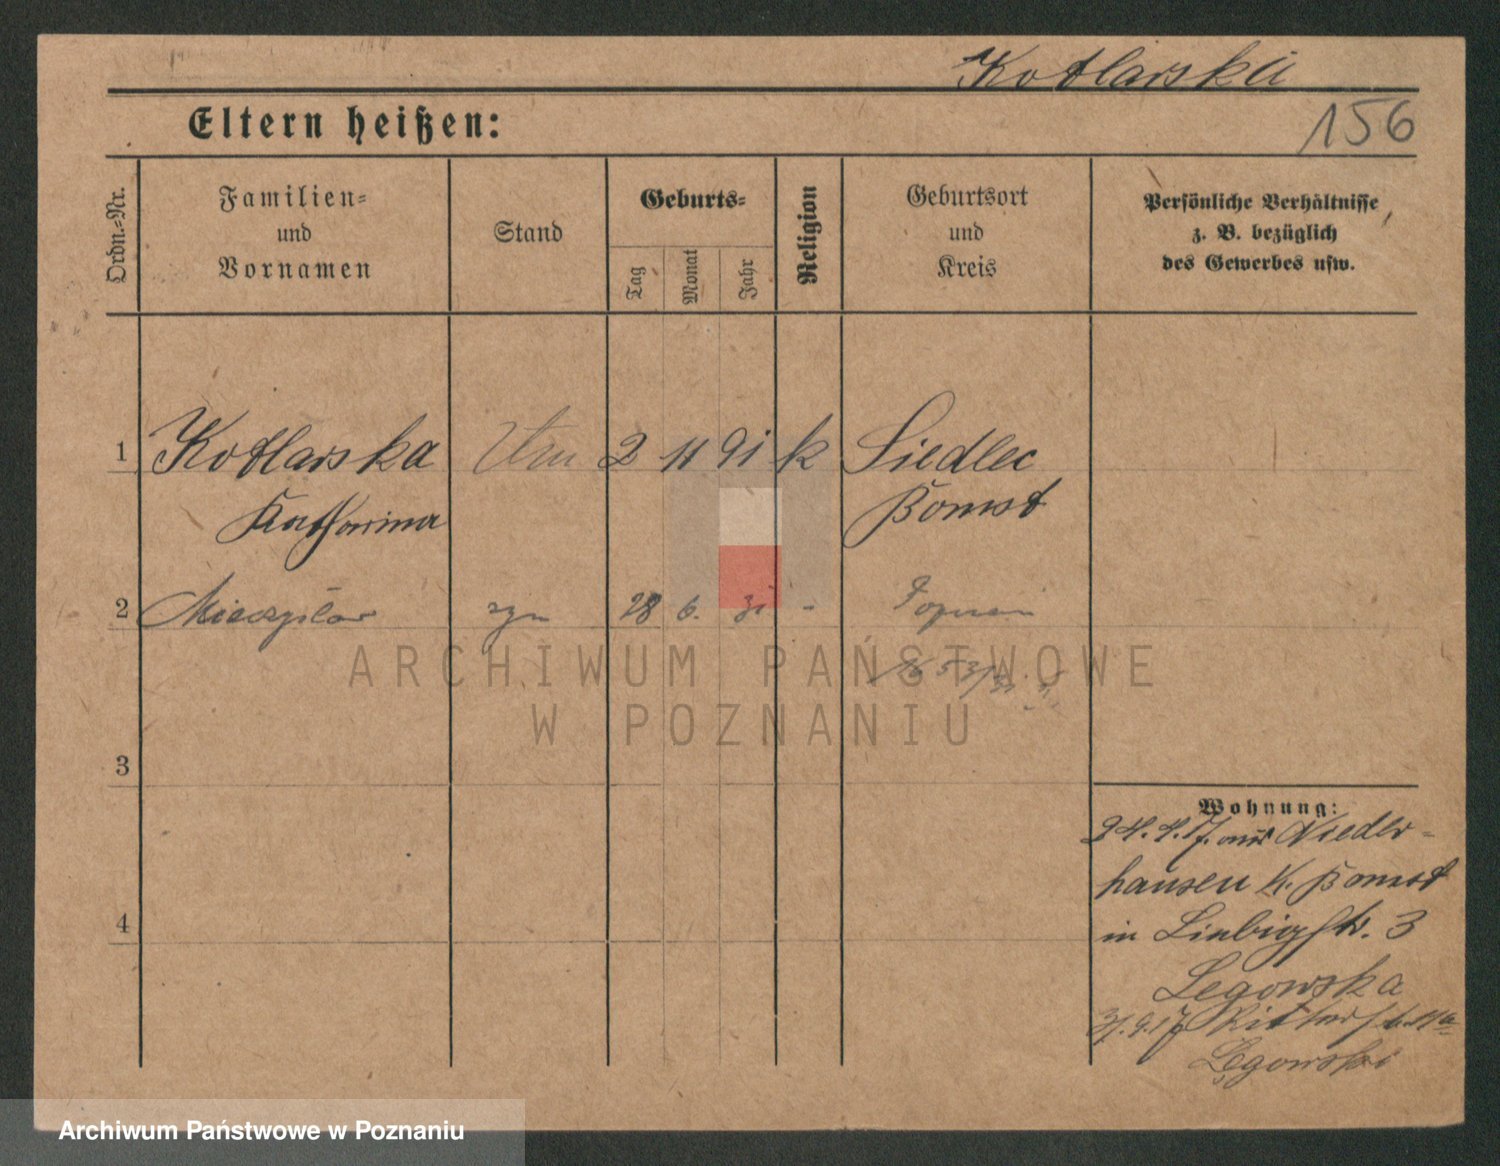 Kotlarska
156
Eltern heißen:
Ordn.-Nr.
Familien-
und
Vornamen
Stand
Geburts-
Tag
Monat
Jahr
Religion
Geburtsort
und
Kreis
Persönliche Verhältnisse
z. B. bezüglich
des Gewerbes usw.
1 Kotlarska 2 11 91 k Siedlec
Katharina Bomst
2 Mieczysław syn 28 6. 31 -
ARCHIWUM PAŃSTWOWE
W POZNANIU
3
Wohnung:
24.4.17. aus Nieder-
hausen K. Bomst
4
in Liebigstr. 3
Legowska
31.9.17 Ritterstr. 11a
Łęgowski
Archiwum Państwowe w Poznaniu